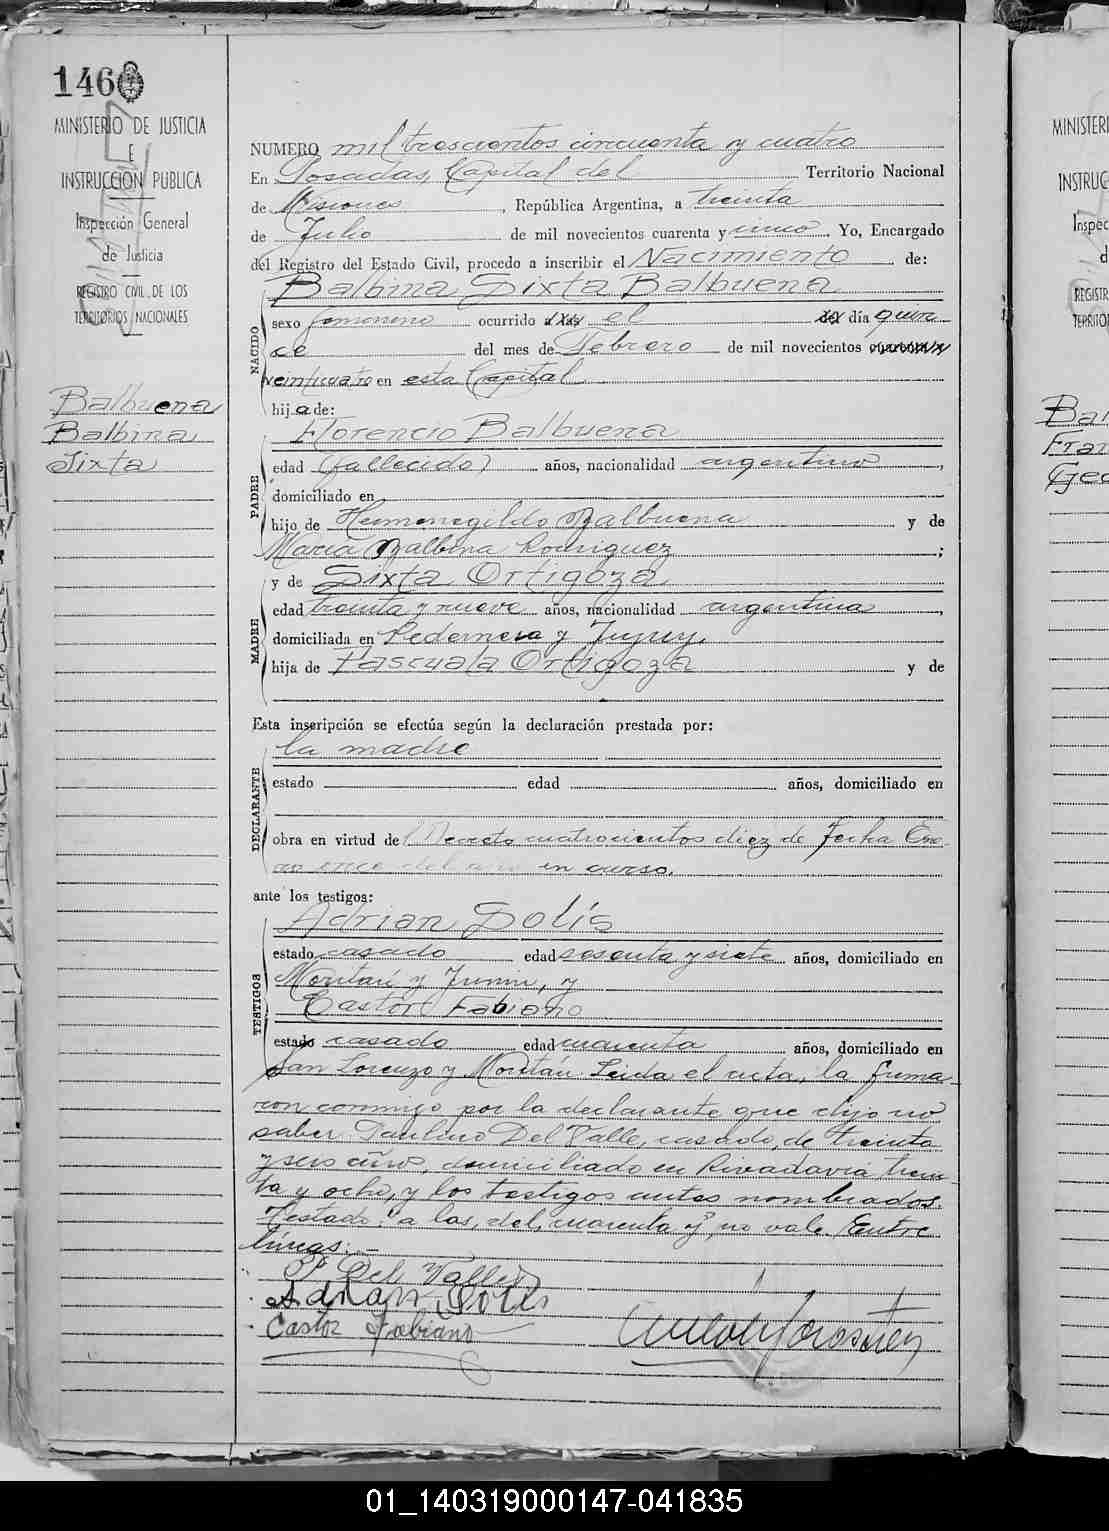 146
MINISTERIO DE JUSTICIA
E
INSTRUCCION PUBLICA
Inspección General
de Justicia
REGISTRO CIVIL DE LOS
TERRITORIOS NACIONALES
Balbuena
Balbina
Sixta
NUMERO mil trescientos cincuenta y cuatro
En Posadas, Capital del Territorio Nacional
de Misiones, República Argentina, a treinta
de Julio de mil novecientos cuarenta y cinco. Yo, Encargado
del Registro del Estado Civil, procedo a inscribir el Nacimiento de:
Balbina Sixta Balbuena
NACIDO
sexo femenino ocurrido a las el del día quin
ce del mes de Febrero de mil novecientos cuarenta y
veinticuatro en esta Capital
hija de:
Florencio Balbuena
PADRE
edad (fallecido) años, nacionalidad argentino,
domiciliado en
hijo de Hermenegildo Balbuena y de
María Balbina Rodriguez;
y de Sixta Ortigoza
MADRE
edad treinta y nueve años, nacionalidad argentina,
domiciliada en Pedernera y Jujuy.
hija de Pascuala Ortigoza y de
Esta inscripción se efectúa según la declaración prestada por:
la madre
DECLARANTE
estado edad años, domiciliado en
obra en virtud del Decreto cuatrocientos diez de fecha Ene-
ro once del año en curso.
ante los testigos:
Adrian Solís
TESTIGOS
estado casado edad sesenta y siete años, domiciliado en
y Junin, y
Castor Fabiano
estado casado edad cuarenta años, domiciliado en
San Lorenzo y Leida el acta, la firma-
ron conmigo por la declarante que dijo no
saber Paulino Del Valle, casado, de treinta
y seis años, domiciliado en Rivadavia trein-
ta y ocho, y los testigos antes nombrados.
Testado: "a las, del, cuarenta y", no vale. Entre
líneas: —
P Del Valle
Adrian Solis
Castor Fabiano
MINISTERI
INSTRUC
Inspec
d
REGISTR
TERRITO
Bal
Fran
Geo
01_140319000147-041835